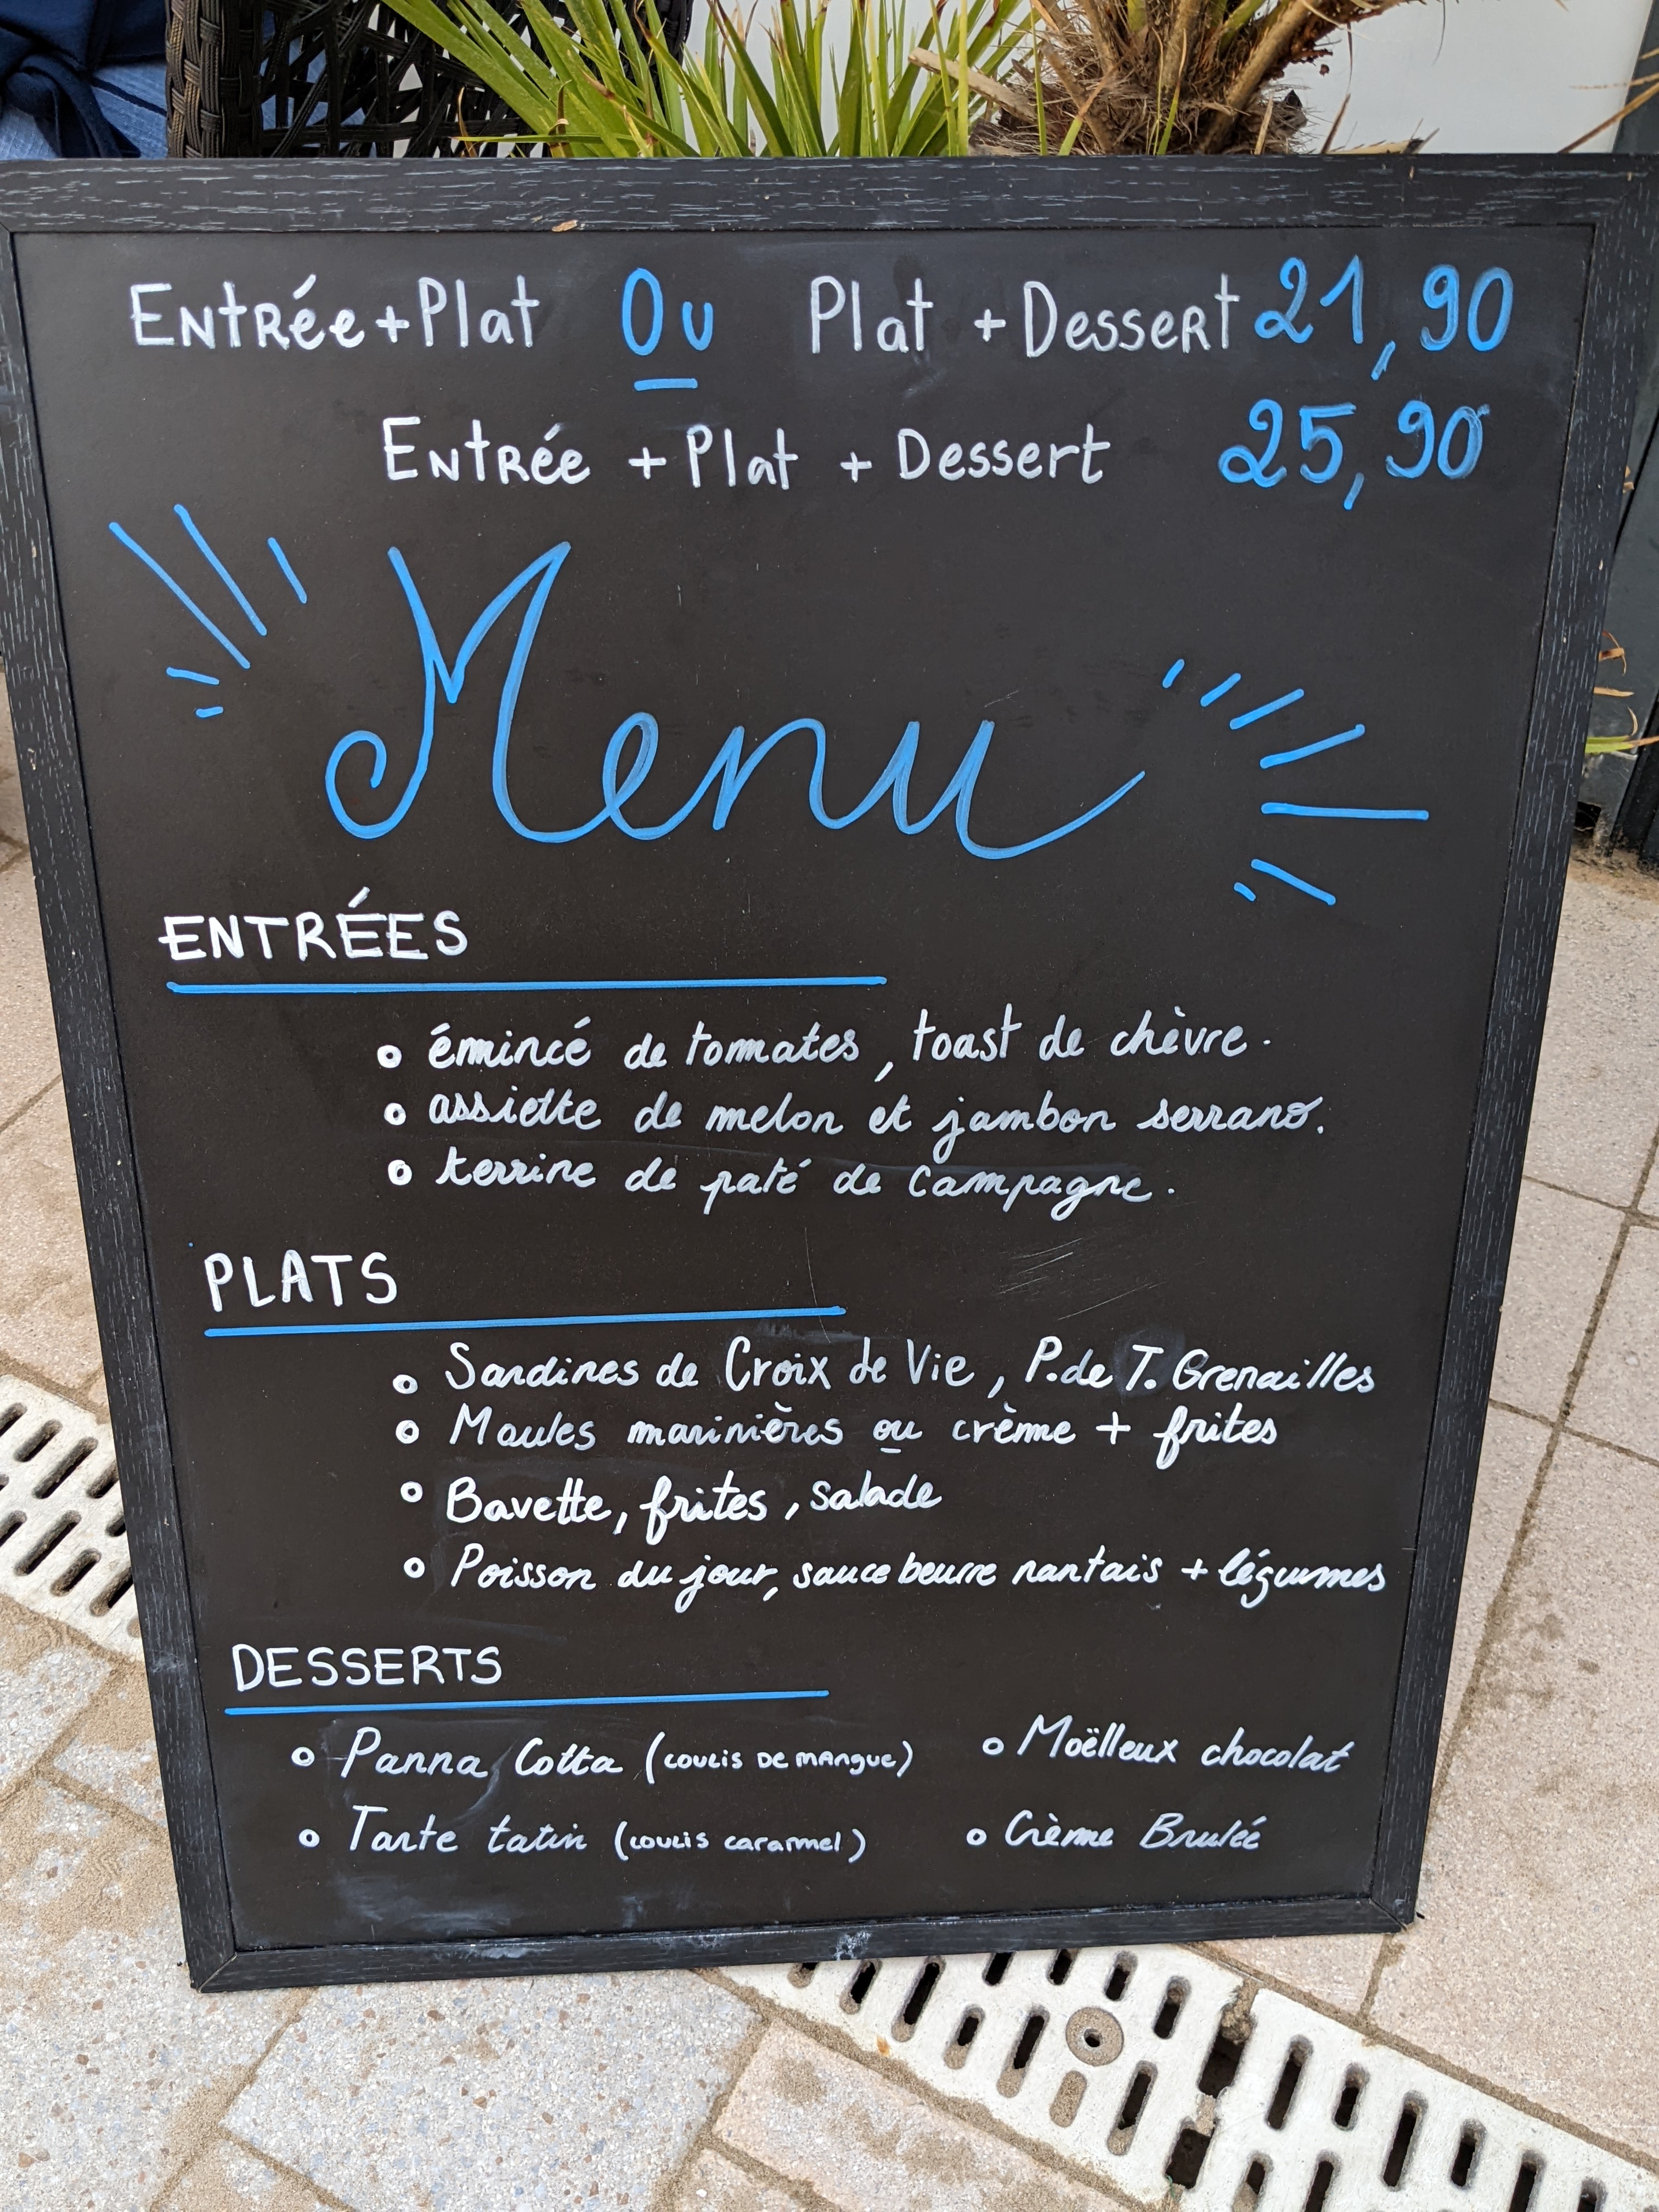 Entrée+Plat Ou Plat + Dessert 21,90
Entrée + Plat + Dessert 25,90
Menu
ENTRÉES
émincé de tomates, toast de chèvre.
assiette de melon et jambon serrano.
terrine de paté de Campagne.
PLATS
Sardines de Croix de Vie, P. de T. Grenailles
Moules marinières ou crème + frites
Bavette, frites, salade
Poisson du jour, sauce beurre nantais + légumes
DESSERTS
Panna Cotta (coulis de mangue)
Moëlleux chocolat
Tarte tatin (coulis caramel)
Crème Brulée